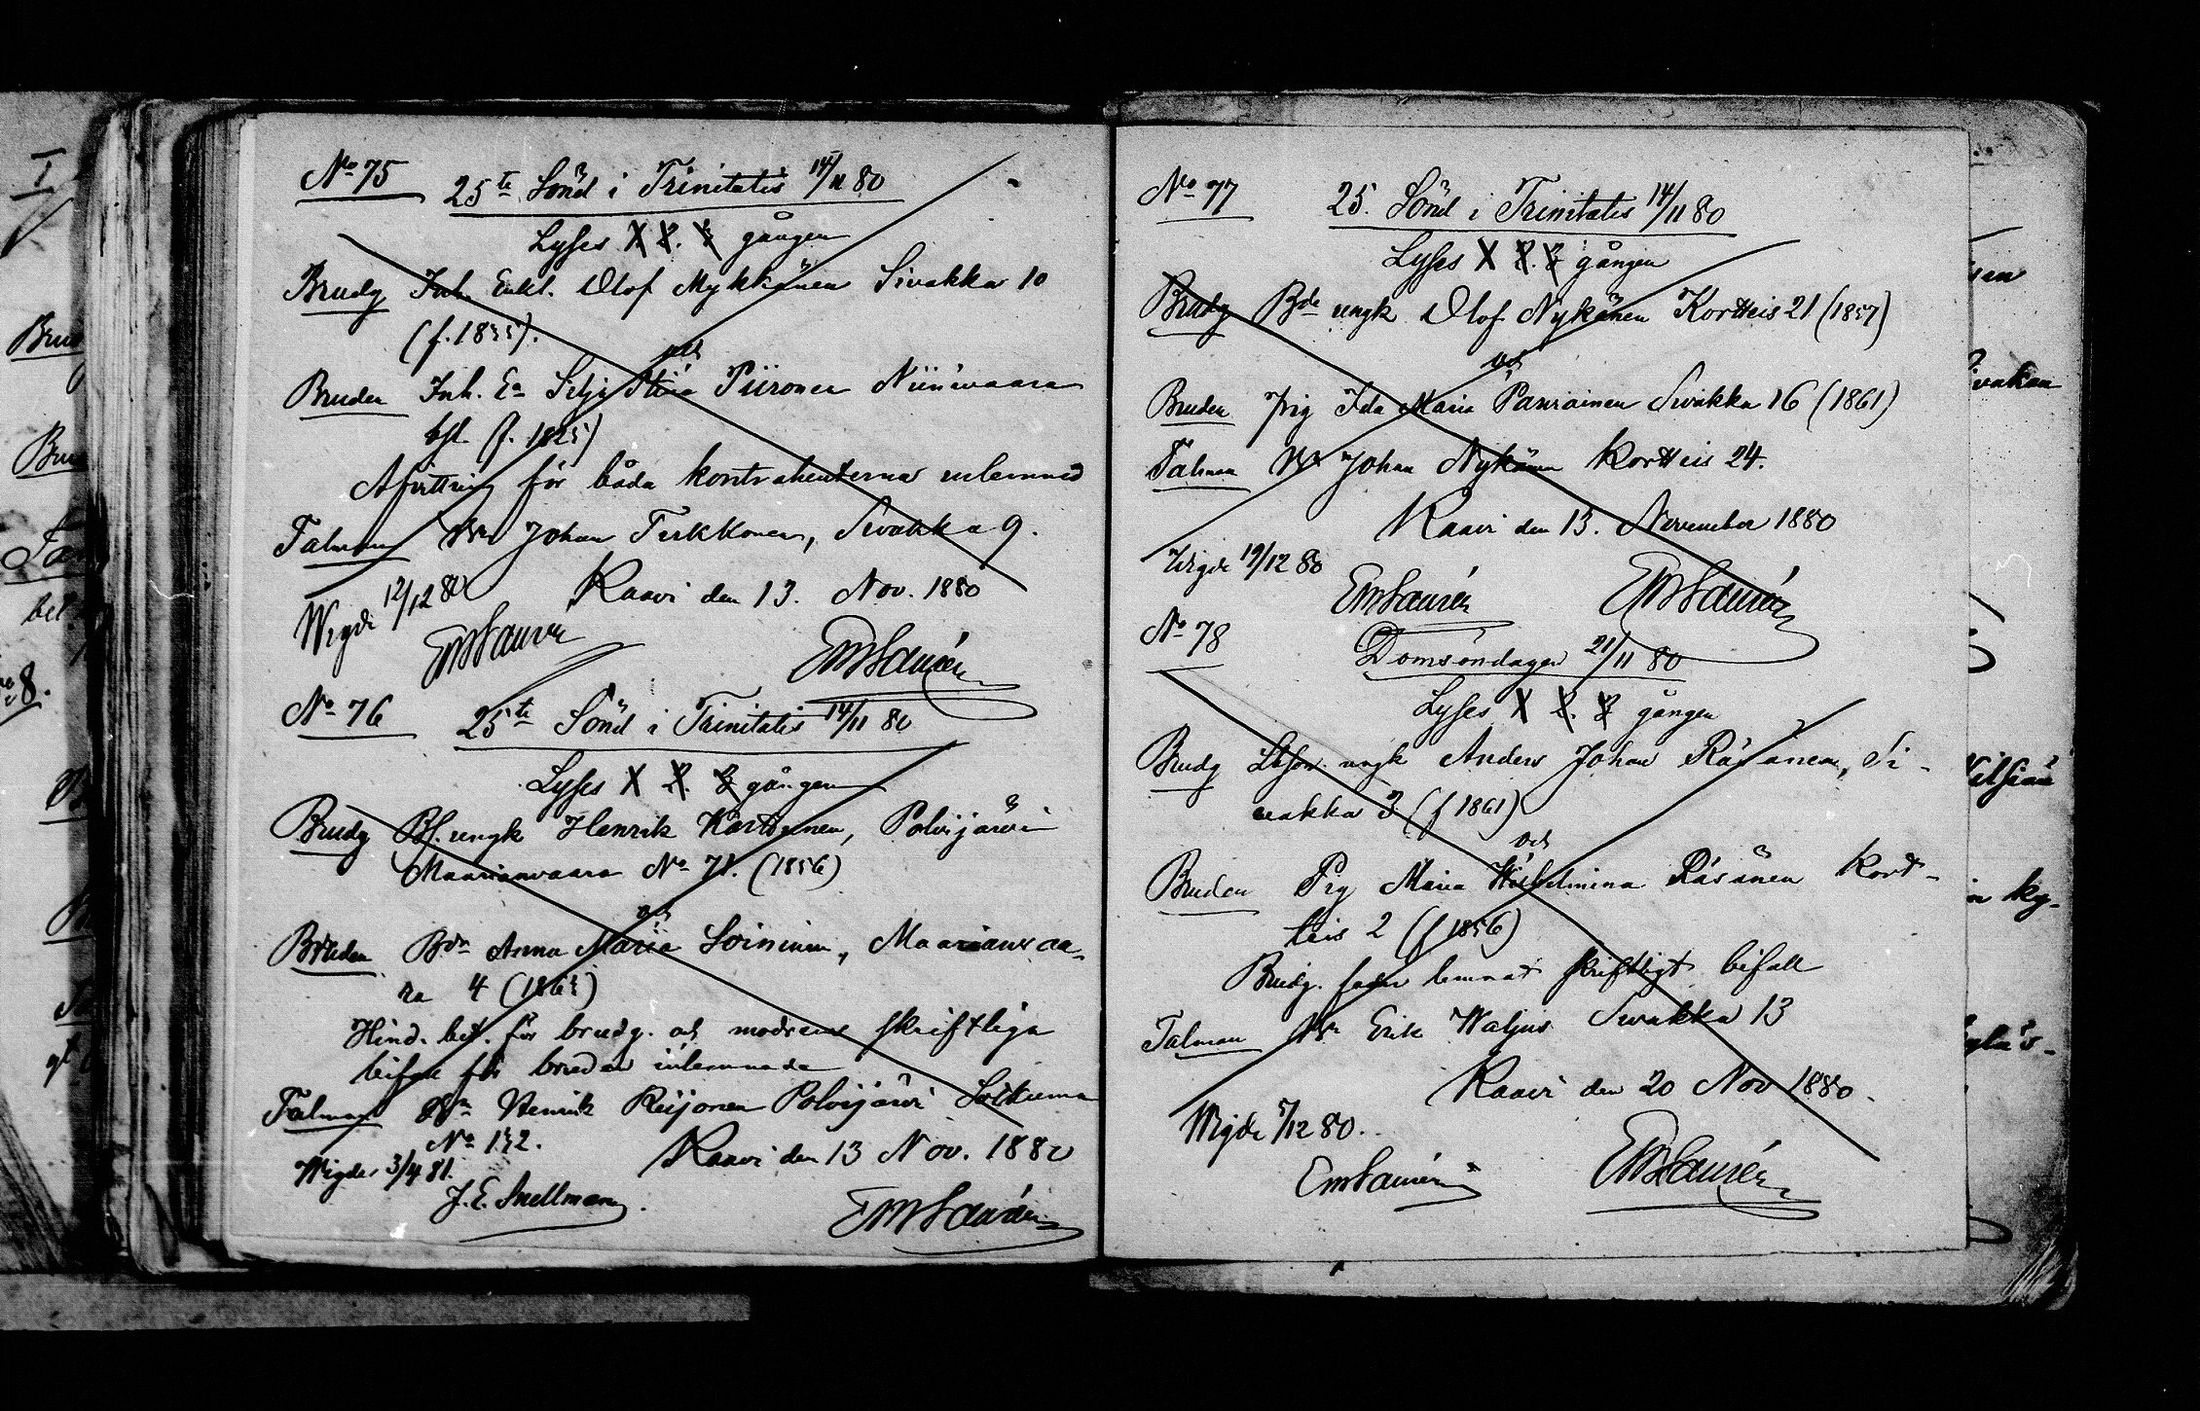 No 75
25te Sönd i Trinitatis 14/11 80
Lyses 1 2. 3 gången
Brudg Inh. Enkl. Olof Mykkänen Sivakka 10
(f. 1835).
och
Bruden Inh. Ea Piironen Niinivaara
(f. 1825)
Afvittring för båda kontrahenterna inlemnad
Talman Johan Terkkonen, Sivakka 9.
Kaavi den 13. Nov. 1880
Wigde 12/12 80
EMSaurén
EMSaurén
No 76
25te Sönd i Trinitatis 14/11 80
Lyses 1 2. 3 gången
Brudg ungk Henrik Polvijärvi
Maarianvaara No 71. (1856)
och
Bruden Bdr Anna Maria Soininen, Maarianvaa-
ra 4 (1863)
Hind. bet. för brudg. och modrens skriftliga
bifall för bruden inlemnade
Talman Henrik Reijonen Polvijärvi
No 132.
Kaavi den 13 Nov. 1880
Wigde 3/4 81.
J. E. Snellman
EMSaurén
No 77
25. Sönd i Trinitatis 14/11 80
Lyses 1 2. 3 gången
Brudg Bde ungk Olof Nykänen Kortteis 21 (1857)
och
Bruden Pig Ida Maria Panrainen Sivakka 16 (1861)
Talman Johan Nykänen Kortteis 24.
Kaavi den 13. November 1880
Wigde 19/12 80
EMSaurén
EMSaurén
No 78
Domsöndagen 21/11 80
Lyses 1 2. 3 gången
Brudg ungk Anders Johan Räsänen, Si-
vakka 3 (f 1861)
och
Bruden Pig Maria Wilhelmina Räsänen Kort-
teis 2 (f 1856)
Brudg. fader lemnat skriftligt bifall
Talman Erik Waljus Sivakka 13
Kaavi den 20 Nov 1880.
Wigde 5/12 80.
EMSaurén
EMSaurén